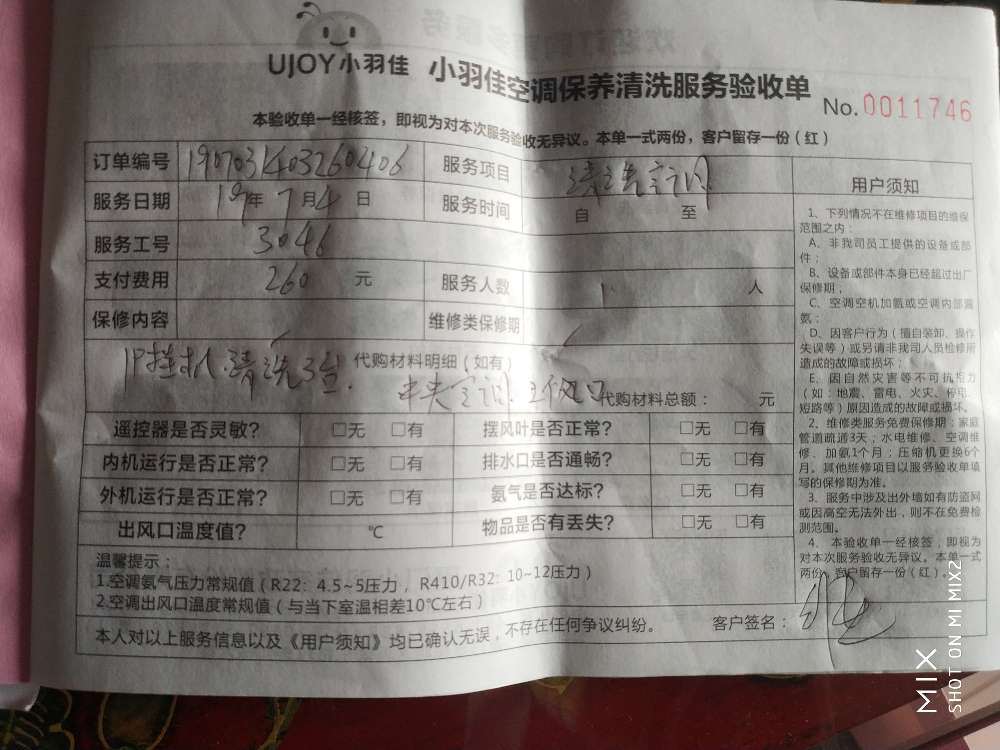 UJOY小羽佳 小羽佳空调保养清洗服务验收单
No.0011746
本验收单一经核签，即视为对本次服务验收无异议。本单一式两份，客户留存一份（红）
订单编号 1907031403260406 服务项目 清洗空调
服务日期 19年 7月4日 服务时间 自 至
服务工号 3046
支付费用 260 元 服务人数 1 人
保修内容 维修类保修期
1P挂机.清洗3台. 代购材料明细（如有）
中央空调 风口 代购材料总额： 元
遥控器是否灵敏？ □无 □有 摆风叶是否正常？ □无 □有
内机运行是否正常？ □无 □有 排水口是否通畅？ □无 □有
外机运行是否正常？ □无 □有 氨气是否达标？ □无 □有
出风口温度值？ ℃ 物品是否有丢失？ □无 □有
温馨提示：
1.空调氨气压力常规值（R22：4.5~5压力，R410/R32：10~12压力）
2.空调出风口温度常规值（与当下室温相差10℃左右）
本人对以上服务信息以及《用户须知》均已确认无误，不存在任何争议纠纷。 客户签名：
用户须知
1、下列情况不在维修项目的维保
范围之内：
A、非我司员工提供的设备或部
件；
B、设备或部件本身已经超过出厂
保修期；
C、空调空机加氨或空调内部漏
氨；
D、因客户行为（擅自装卸、操作
失误等）或另请非我司人员检修所
造成的故障或损坏；
E、因自然灾害等不可抗拒力
（如：地震、雷电、火灾、停电、
短路等）原因造成的故障或损坏。
2、维修类服务免费保修期：家庭
管道疏通3天；水电维修、空调维
修、加氨1个月；压缩机更换6个
月。其他维修项目以服务验收单填
写的保修期为准。
3、服务中涉及出外墙如有防盗网
或因高空无法外出，则不在免费检
测范围。
4、本验收单一经核签，即视为
对本次服务验收无异议。本单一式
两份，客户留存一份（红）。
MIX
SHOT ON MI MIX2